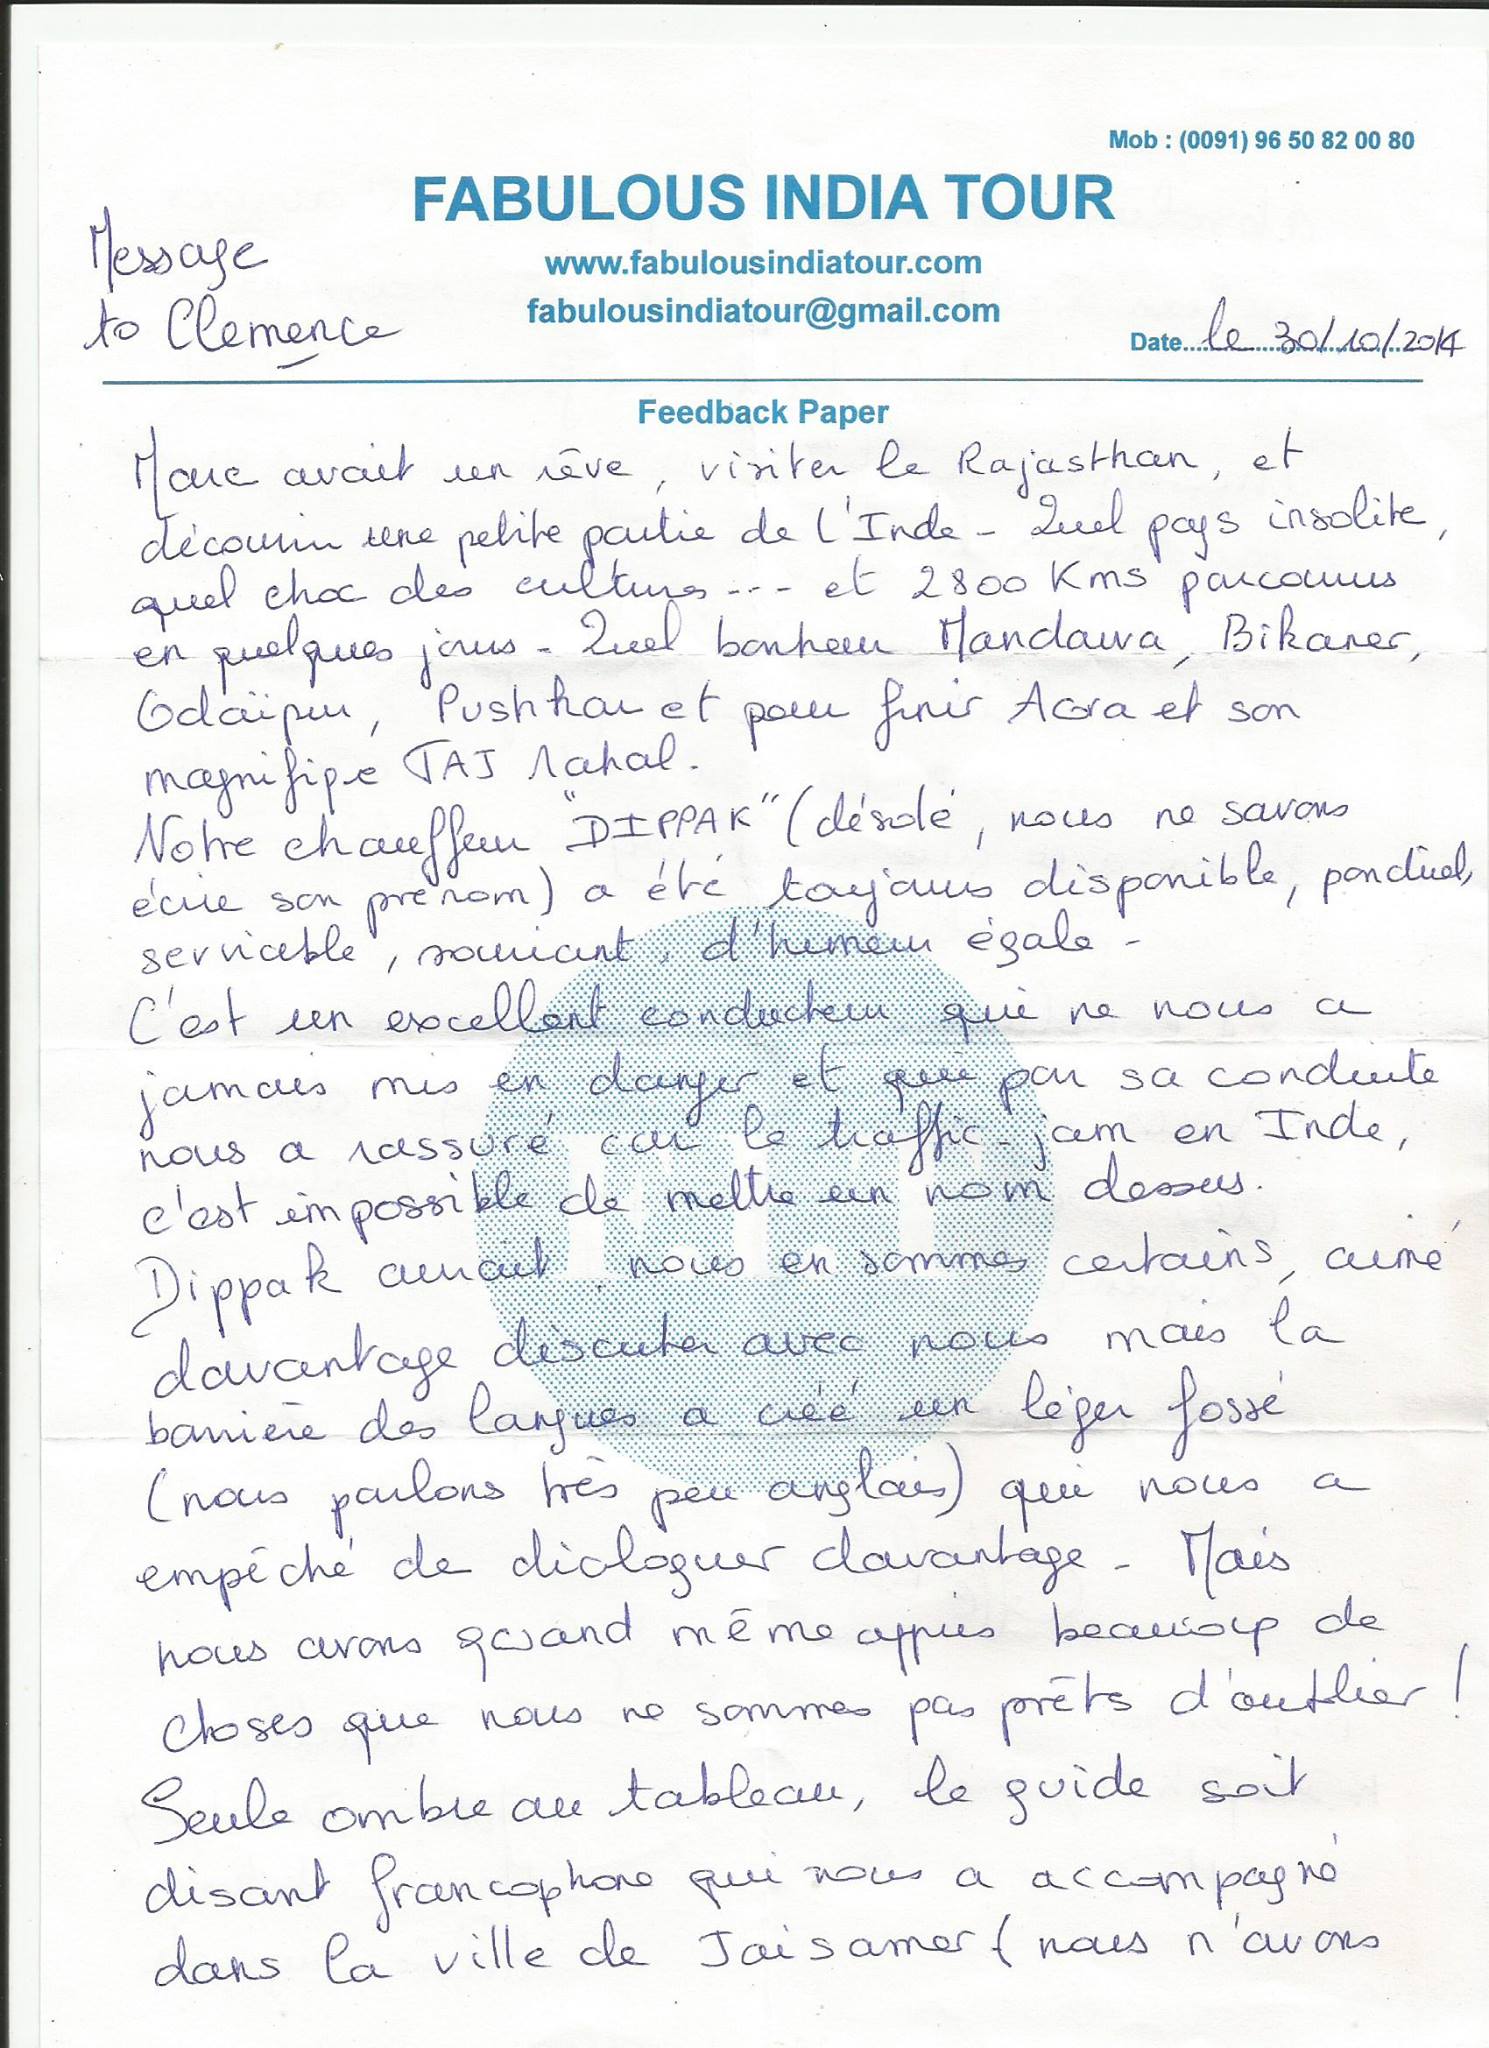 Mob : (0091) 96 50 82 00 80
FABULOUS INDIA TOUR
Message
to Clemence
www.fabulousindiatour.com
fabulousindiatour@gmail.com
Date....le 30/10/2014
Feedback Paper
Marc avait un rêve, visiter le Rajasthan, et
découvrir une petite partie de l'Inde - Quel pays insolite,
quel choc des cultures --- et 2800 Kms parcourus
en quelques jours - Quel bonheur Mandawa, Bikaner,
Odaïpur, Pushkar et pour finir Agra et son
magnifique TAJ Mahal.
Notre chauffeur "DIPPAK" (désolé, nous ne savons
écrire son prénom) a été toujours disponible, ponctuel,
serviable, souriant, d'humeur égale -
C'est un excellent conducteur qui ne nous a
jamais mis en danger et qui par sa conduite
nous a rassuré car le traffic-jam en Inde,
c'est impossible de mettre un nom dessus.
Dippak aurait, nous en sommes certains, aimé
davantage discuter avec nous mais la
barrière des langues a créé un léger fossé
(nous parlons très peu anglais) qui nous a
empêché de dialoguer davantage - Mais
nous avons quand même appris beaucoup de
choses que nous ne sommes pas prêts d'oublier !
Seule ombre au tableau, le guide soit
disant francophone qui nous a accompagné
dans la ville de Jaisamer (nous n'avons